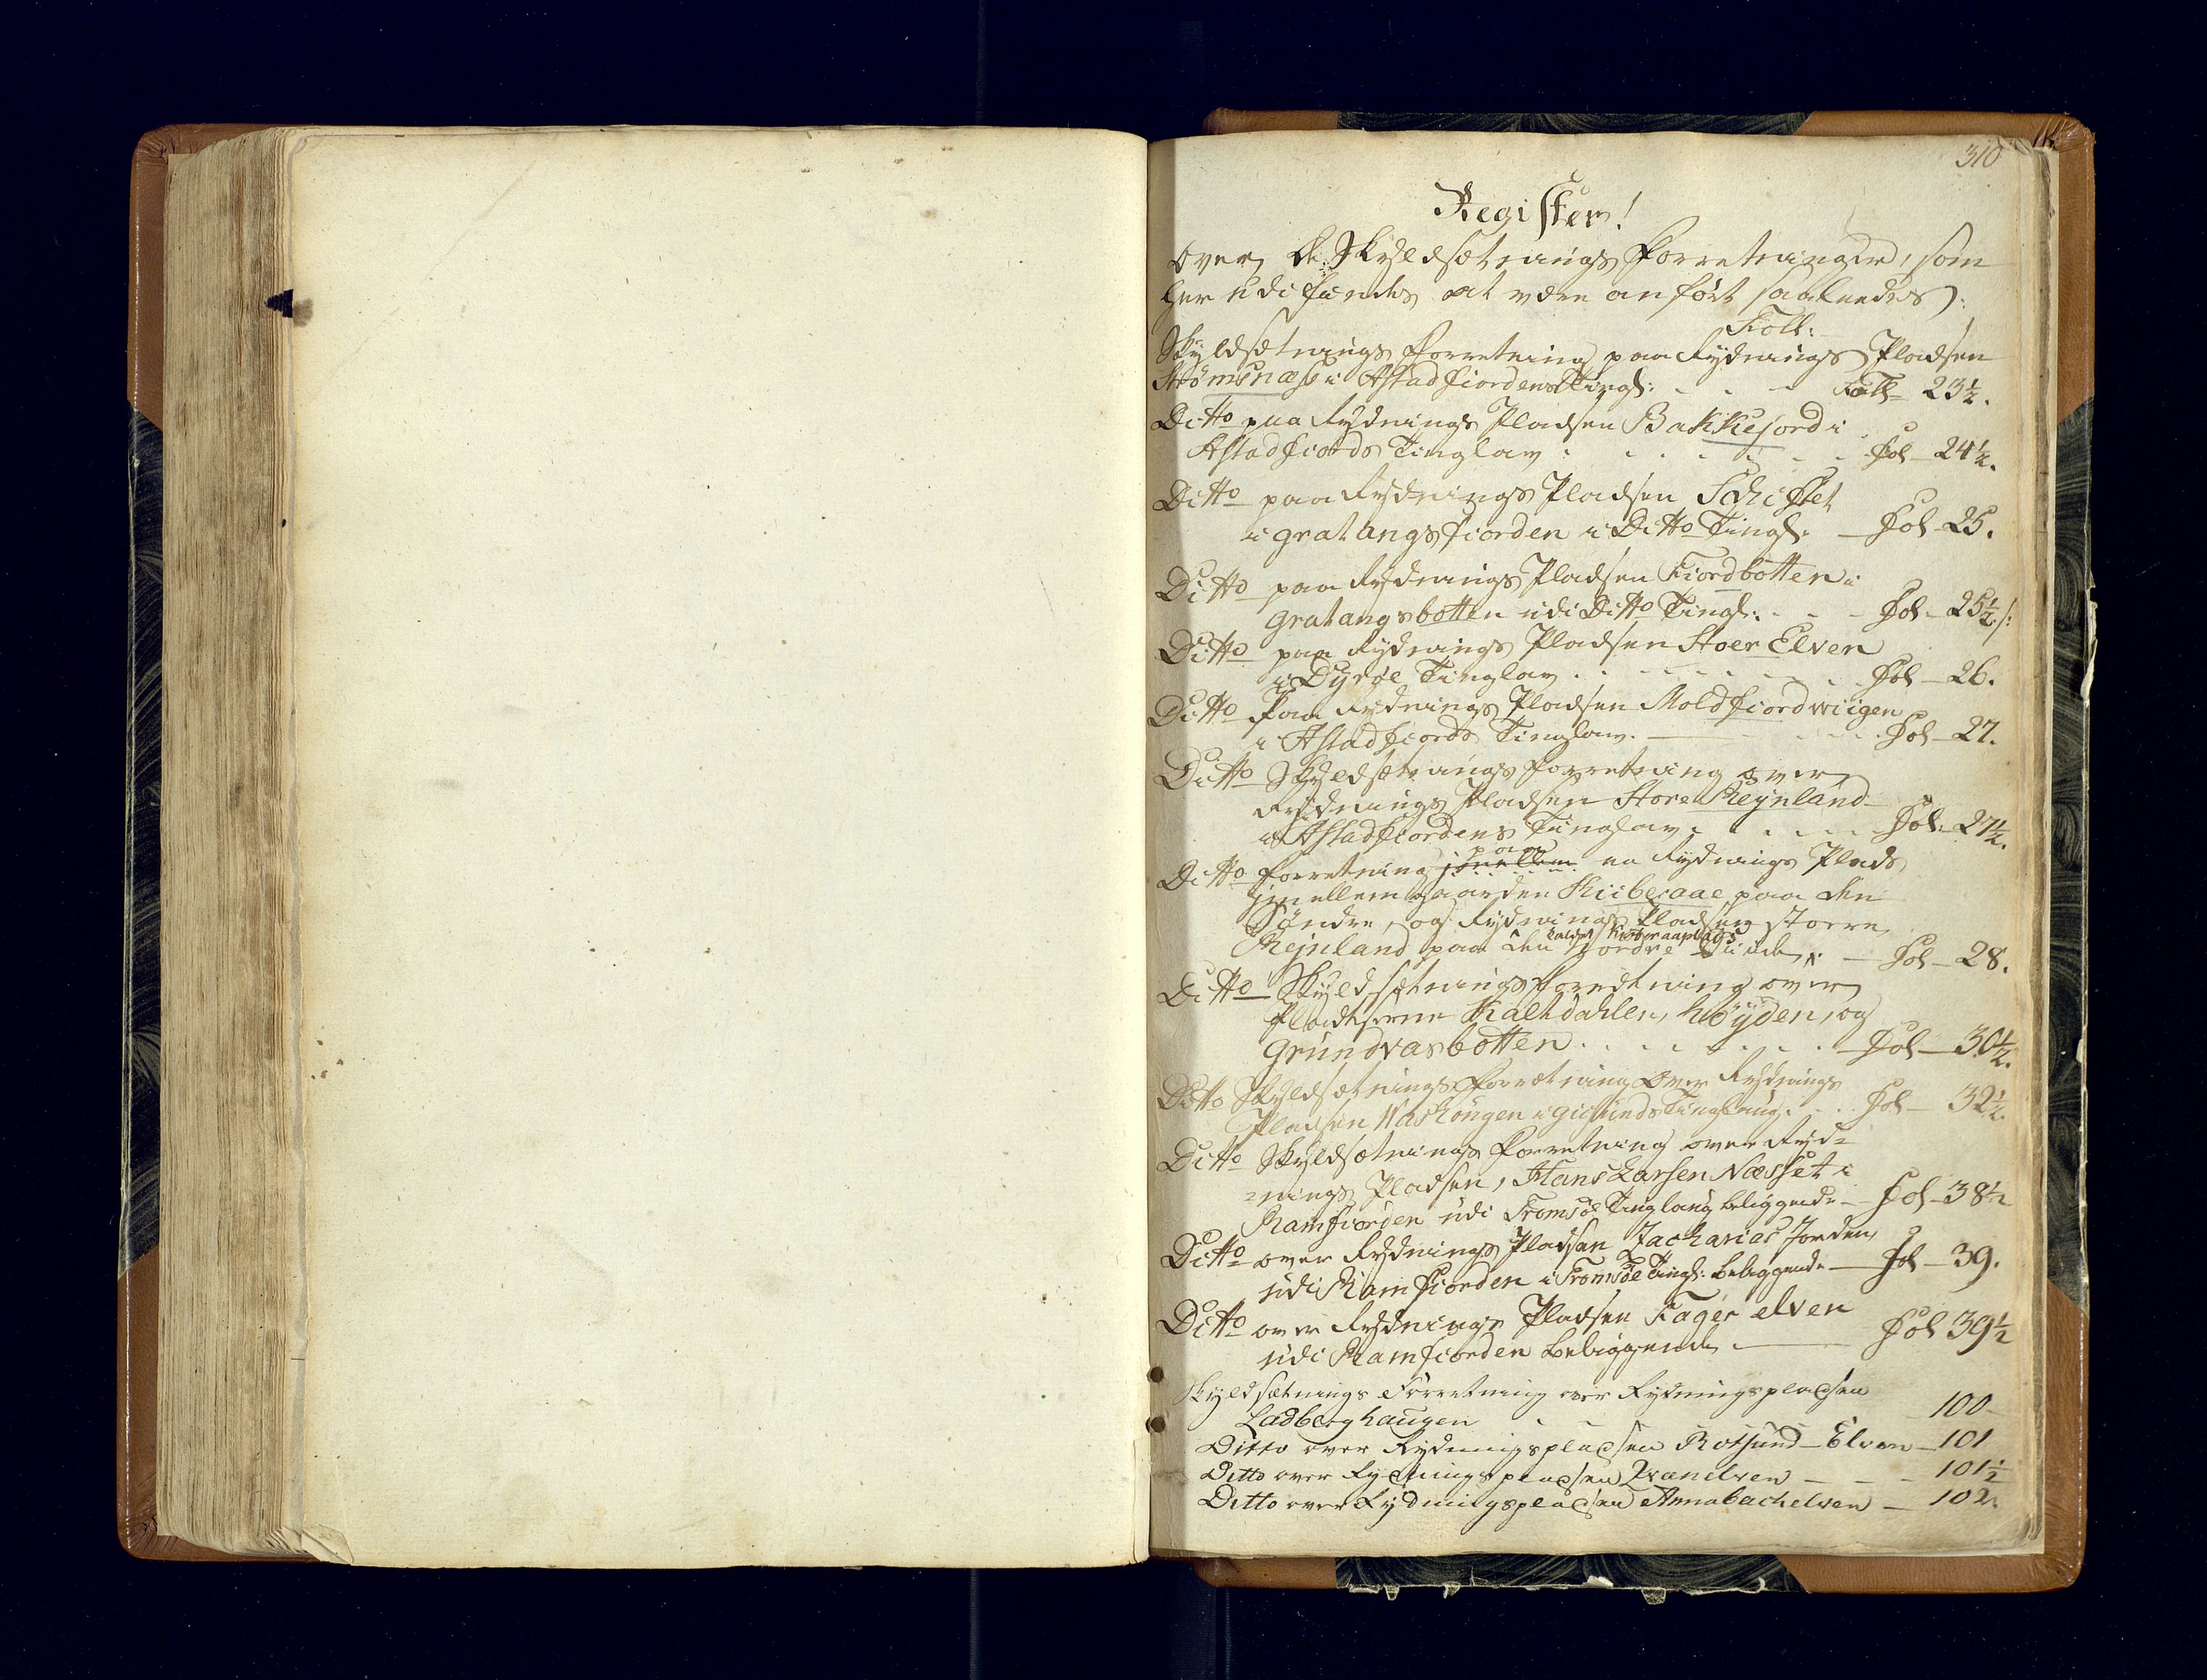 310
Register!
over de Skyldsætnings Forretninger, som
her udi findes at være anført saaledes:
Foll:
Skyldsætnings Forretning paa Rydnings Pladsen
Strømsnæss i Astadfiordens Tingl: Foll 23½.
Ditto paa Rydnings Pladsen Bakkejord i
Astadfiords Tinglav Fol 24½.
Ditto paa Rydnings Pladsen
i gratangsfiorden i Ditto Tingl: Fol 25.
Ditto paa Rydnings Pladsen Fiordbotten i
gratangsbotten udi Ditto Tingl: Fol 25½ /:
Ditto paa Rydnings Pladsen Stoer Elven
i Dyrøe Tinglav Fol 26.
Ditto Paa Rydnings Pladsen Moldfiordwiigen
i Astadfiords Tinglav. Fol 27.
Ditto Skyldsætnings Forretning over
Rydnings Pladsen Store Reynland
i Astadfiordens Tinglav Fol: 27½.
paa
Ditto Forretning imellem en Rydnings Plads
imellem gaarden Kiiberaae paa den
Søndre, og Rydnings Pladsen storre
kaldet Kiiberaaplads
Rejnland paa den nordre Siide, Fol 28.
Ditto Skyldsætnings Foredtning over
Pladserne Kaltdahlen, høyden, og
Grundvasbotten Fol 30½.
Ditto Skyldsætnings Forrætning Over Rydnings
Pladsen Washougen i gisunds Tinglaug. Fol 32½.
Ditto Skyldsætnings Forretning over Ryd=
=nings Pladsen, Hans Larsen Næsset i
Ramfiorden udi Tromsøe Tinglaug beliggende Fol 38½
Ditto over Rydnings Pladsen Zacharias Jorden,
udi Ramfiorden i Tromsøe Tingl: beliggende Fol 39.
Ditto over Rydnings Pladsen Fager elven
udi Ramfiorden beliggende Fol 39½
Skyldsætnings Forretning over Rydningspladsen
Ladberghaugen 100
Ditto over Rydningspladsen Rotsund-Elven 101
Ditto over Rydningspladsen Qvanelven 101½
Ditto over Rydningspladsen Annabachelven 102.